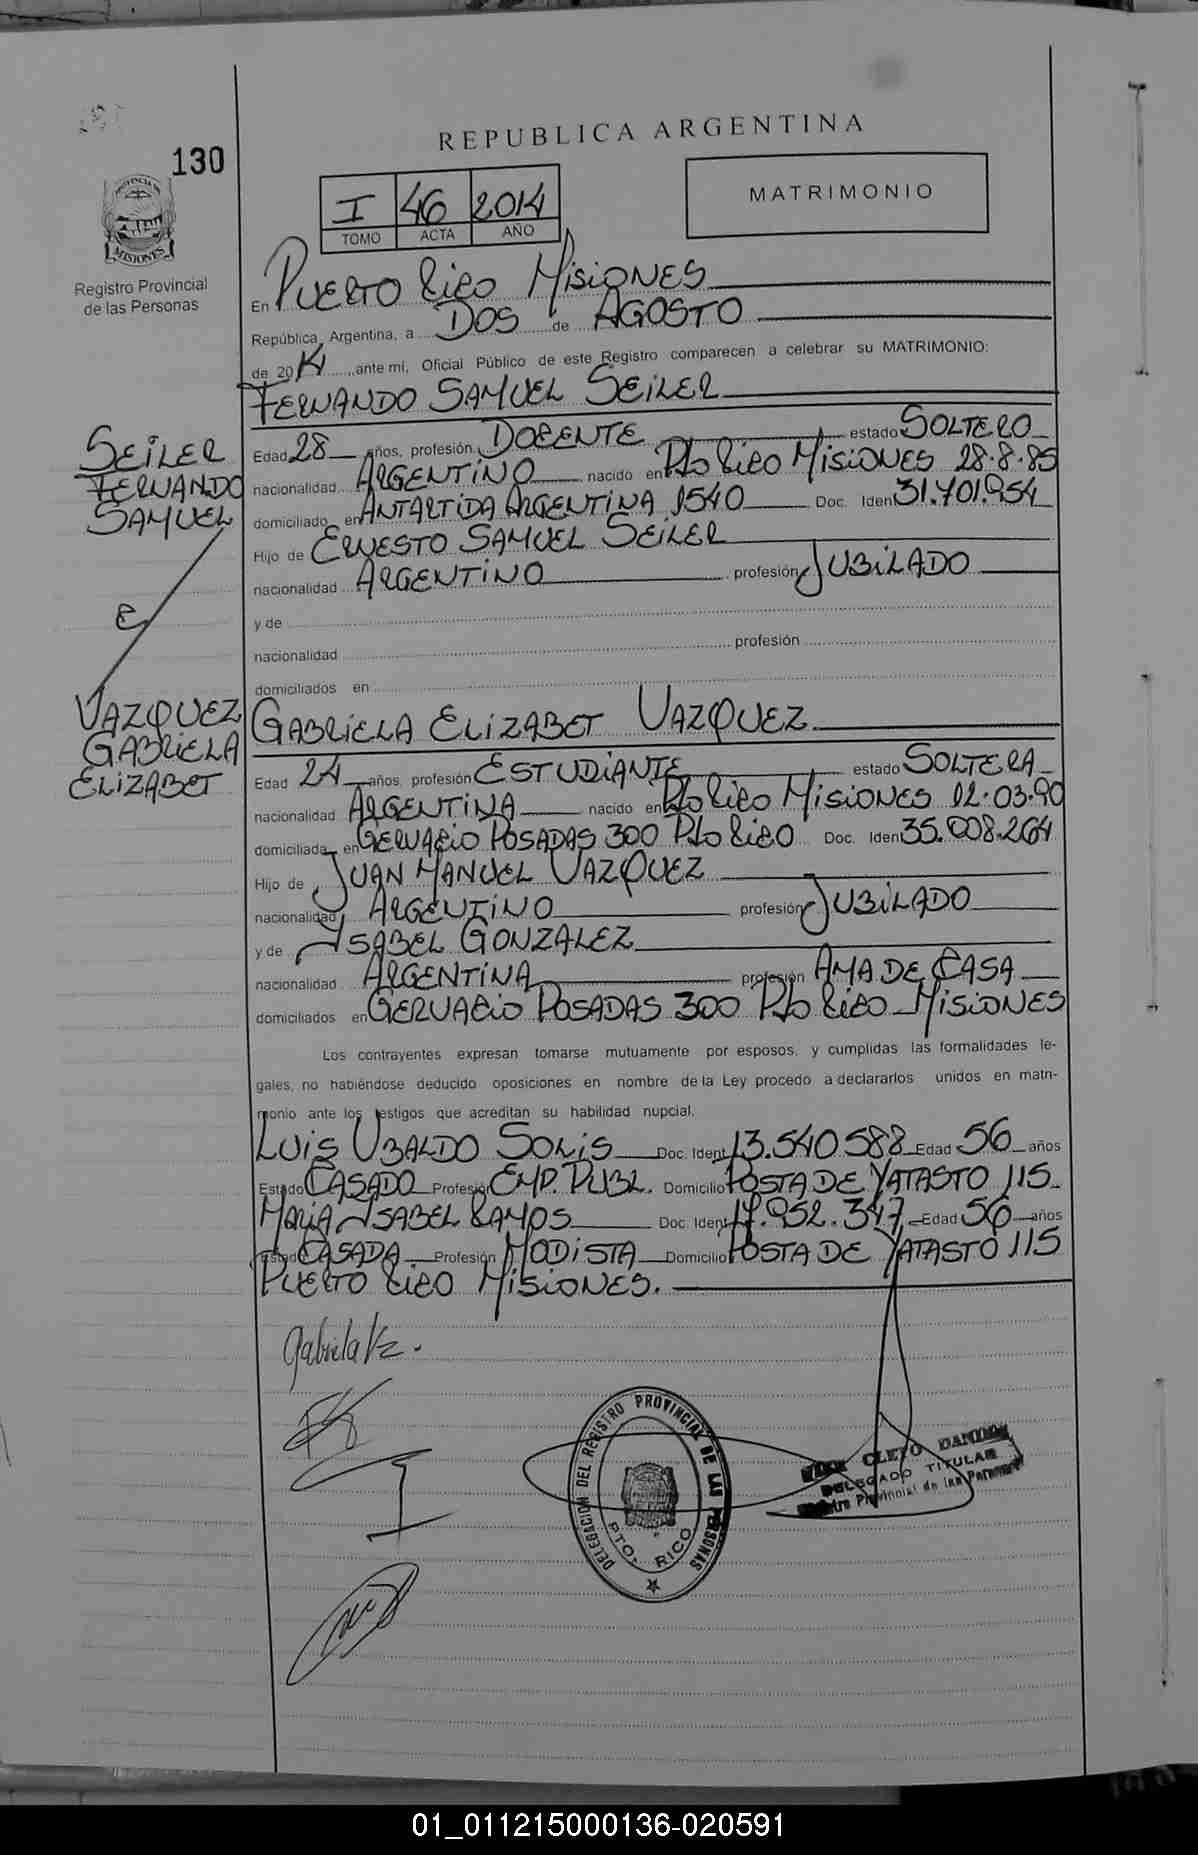 REPUBLICA ARGENTINA
130
I 46 2014
TOMO ACTA AÑO
MATRIMONIO
PROVINCIA DE
MISIONES
Registro Provincial
de las Personas
En PUERTO RICO MISIONES
República Argentina, a DOS de AGOSTO
de 2014 ante mí, Oficial Público de este Registro comparecen a celebrar su MATRIMONIO:
FERNANDO SAMUEL SEILER
SEILER
FERNANDO
SAMUEL
Edad 28 años, profesión DOCENTE estado SOLTERO
nacionalidad ARGENTINO nacido en Pto RICO MISIONES 28.8.85
domiciliado en ANTARTIDA ARGENTINA 1540 Doc. Iden 31.701.954
Hijo de ERNESTO SAMUEL SEILER
nacionalidad ARGENTINO profesión JUBILADO
y de
nacionalidad profesión
domiciliados en
E
VAZQUEZ
GABRIELA
ELIZABET
GABRIELA ELIZABET VAZQUEZ
Edad 24 años, profesión ESTUDIANTE estado SOLTERA
nacionalidad ARGENTINA nacido en Pto RICO MISIONES 12.03.90
domiciliada en GERVACIO POSADAS 300 Pto RICO Doc. Iden 35.008.264
Hijo de JUAN MANUEL VAZQUEZ
nacionalidad ARGENTINO profesión JUBILADO
y de YSABEL GONZALEZ
nacionalidad ARGENTINA profesión AMA DE CASA
domiciliados en GERVACIO POSADAS 300 Pto RICO MISIONES
Los contrayentes expresan tomarse mutuamente por esposos, y cumplidas las formalidades le-
gales, no habiéndose deducido oposiciones en nombre de la Ley procedo a declararlos unidos en matri-
monio ante los testigos que acreditan su habilidad nupcial.
LUIS UBALDO SOLIS Doc. Ident 13.540.588 Edad 56 años
Estado CASADO Profesión EMP. PUBL. Domicilio POSTA DE YATASTO 115
MARIA YSABEL RAMOS Doc. Ident 17.952.347 Edad 56 años
Estado CASADA Profesión MODISTA Domicilio POSTA DE YATASTO 115
PUERTO RICO MISIONES.
Gabriela Vz.
DELEGACION DEL REGISTRO PROVINCIAL DE LAS PERSONAS
PTO. RICO
CLETO
DELEGADO TITULAR
Provincial de las Personas
01_011215000136-020591